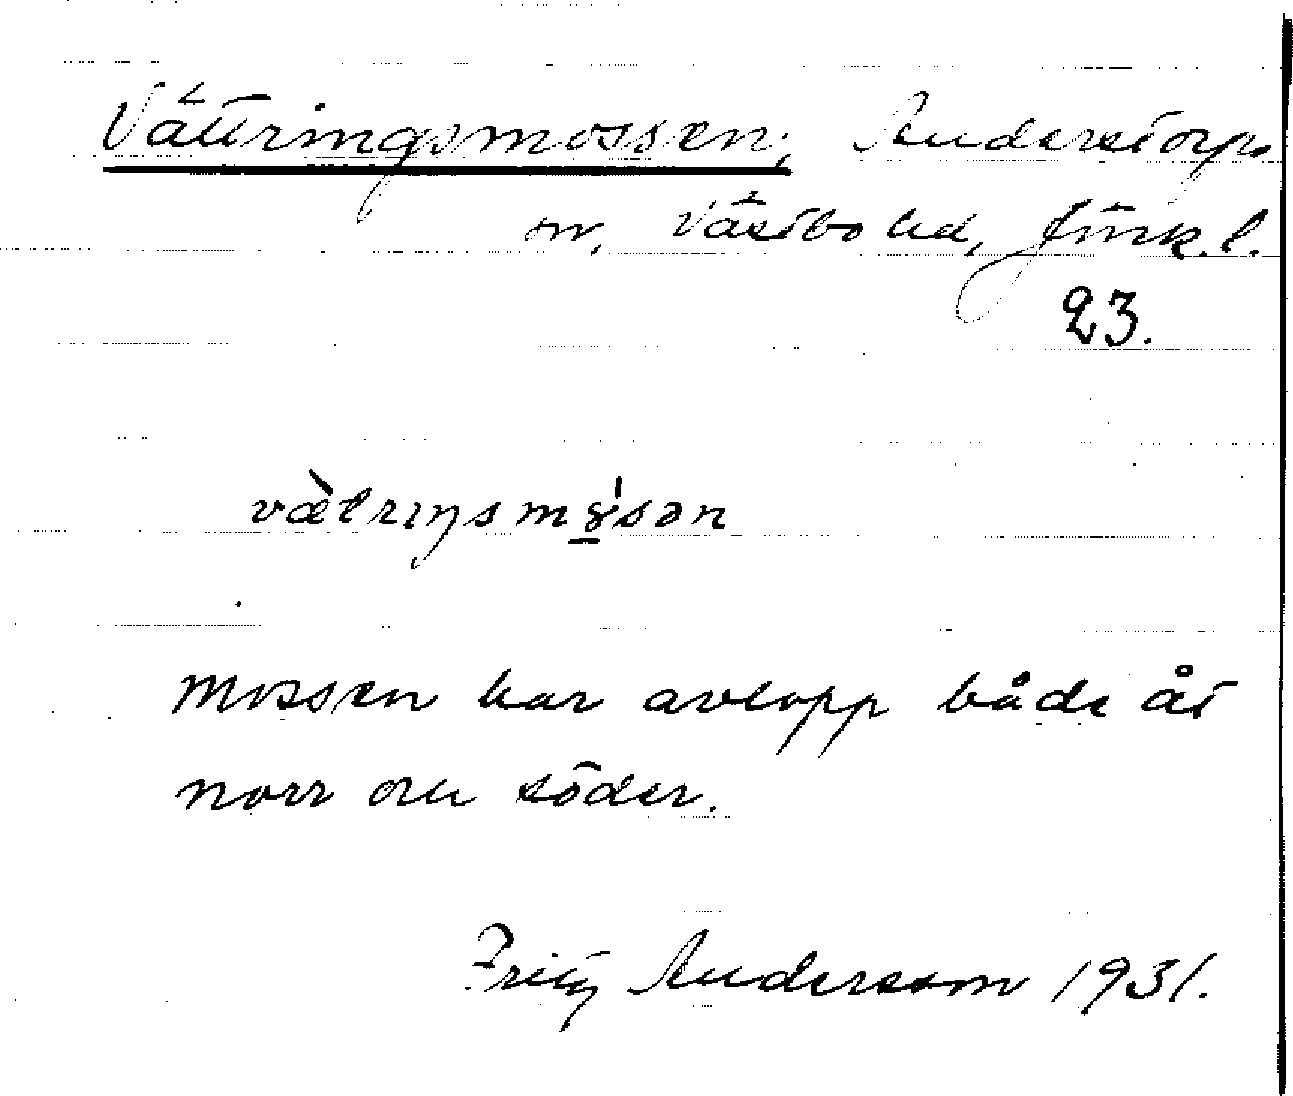 Vättringsmossen; Anderstorps
sn, Västbo hd, Jönk. l.
23.
vætrıŋsmɤ̱sən
Mossen har avlopp både åt
norr och söder.
Fritz Andersson 1931.